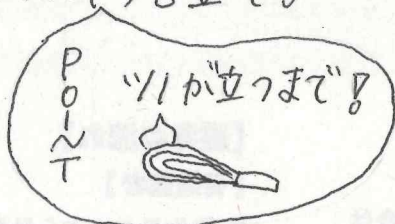 POINT
ツノが立つまで!